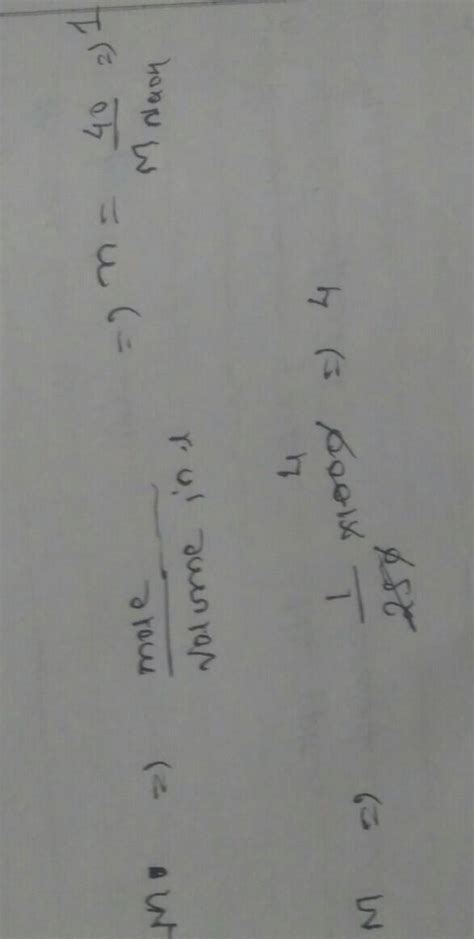 M => mole / Volume in L => m = 40 / M NaOH => 1
M => 1 / 250 x 1000 4 => 4